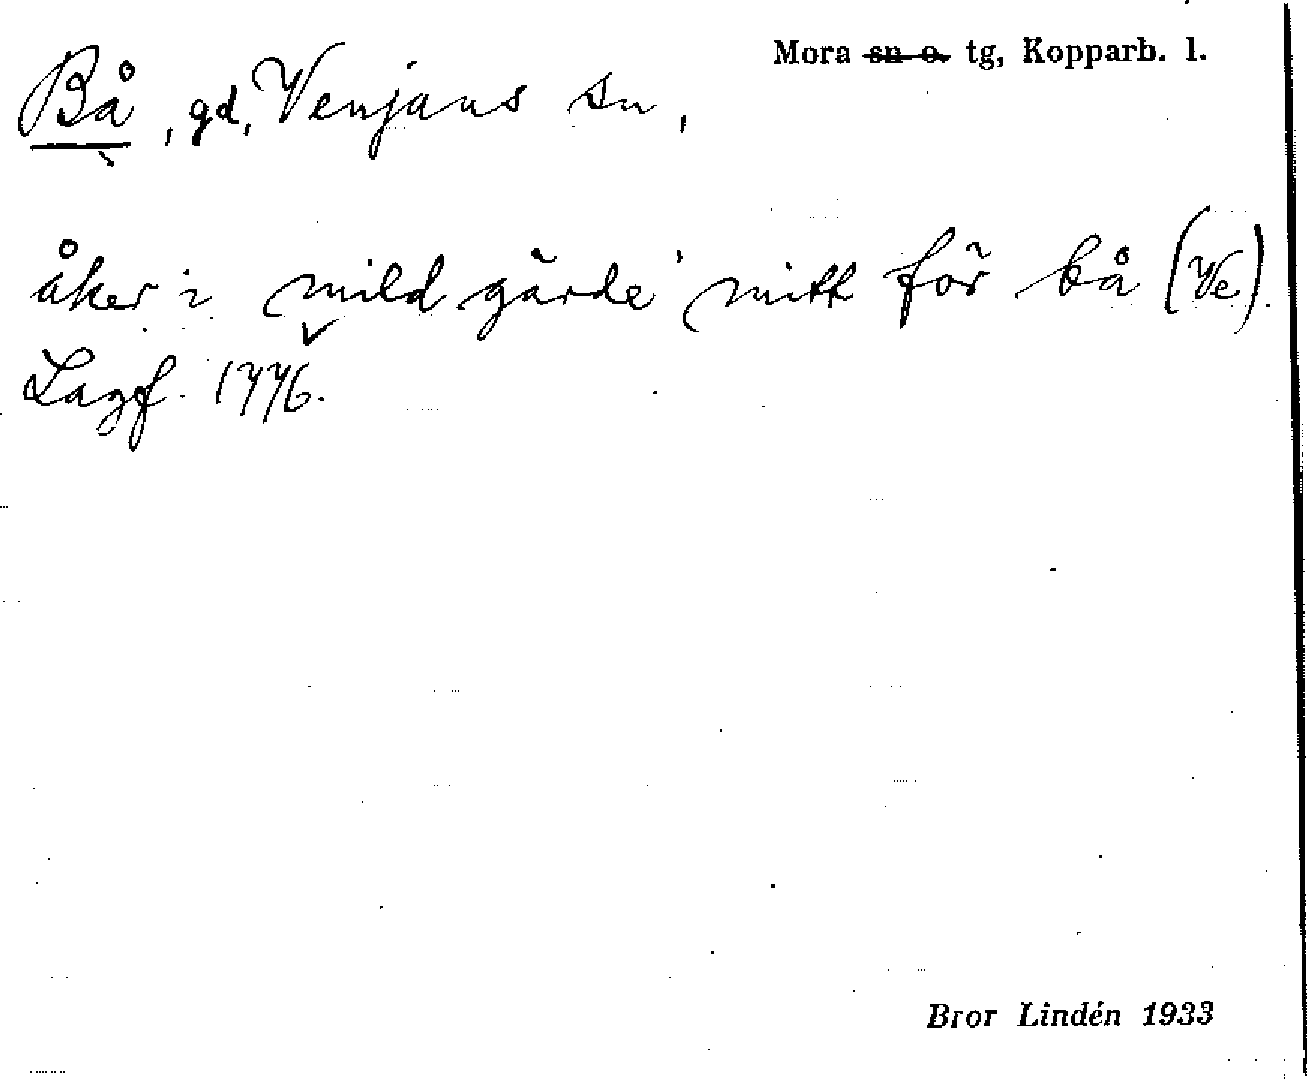 Mora sn o. tg, Kopparb. l.
Bå, gd, Venjans sn,
åker i mild gärde mitt för bå (Ve).
Lagf. 1776.
Bror Lindén 1933